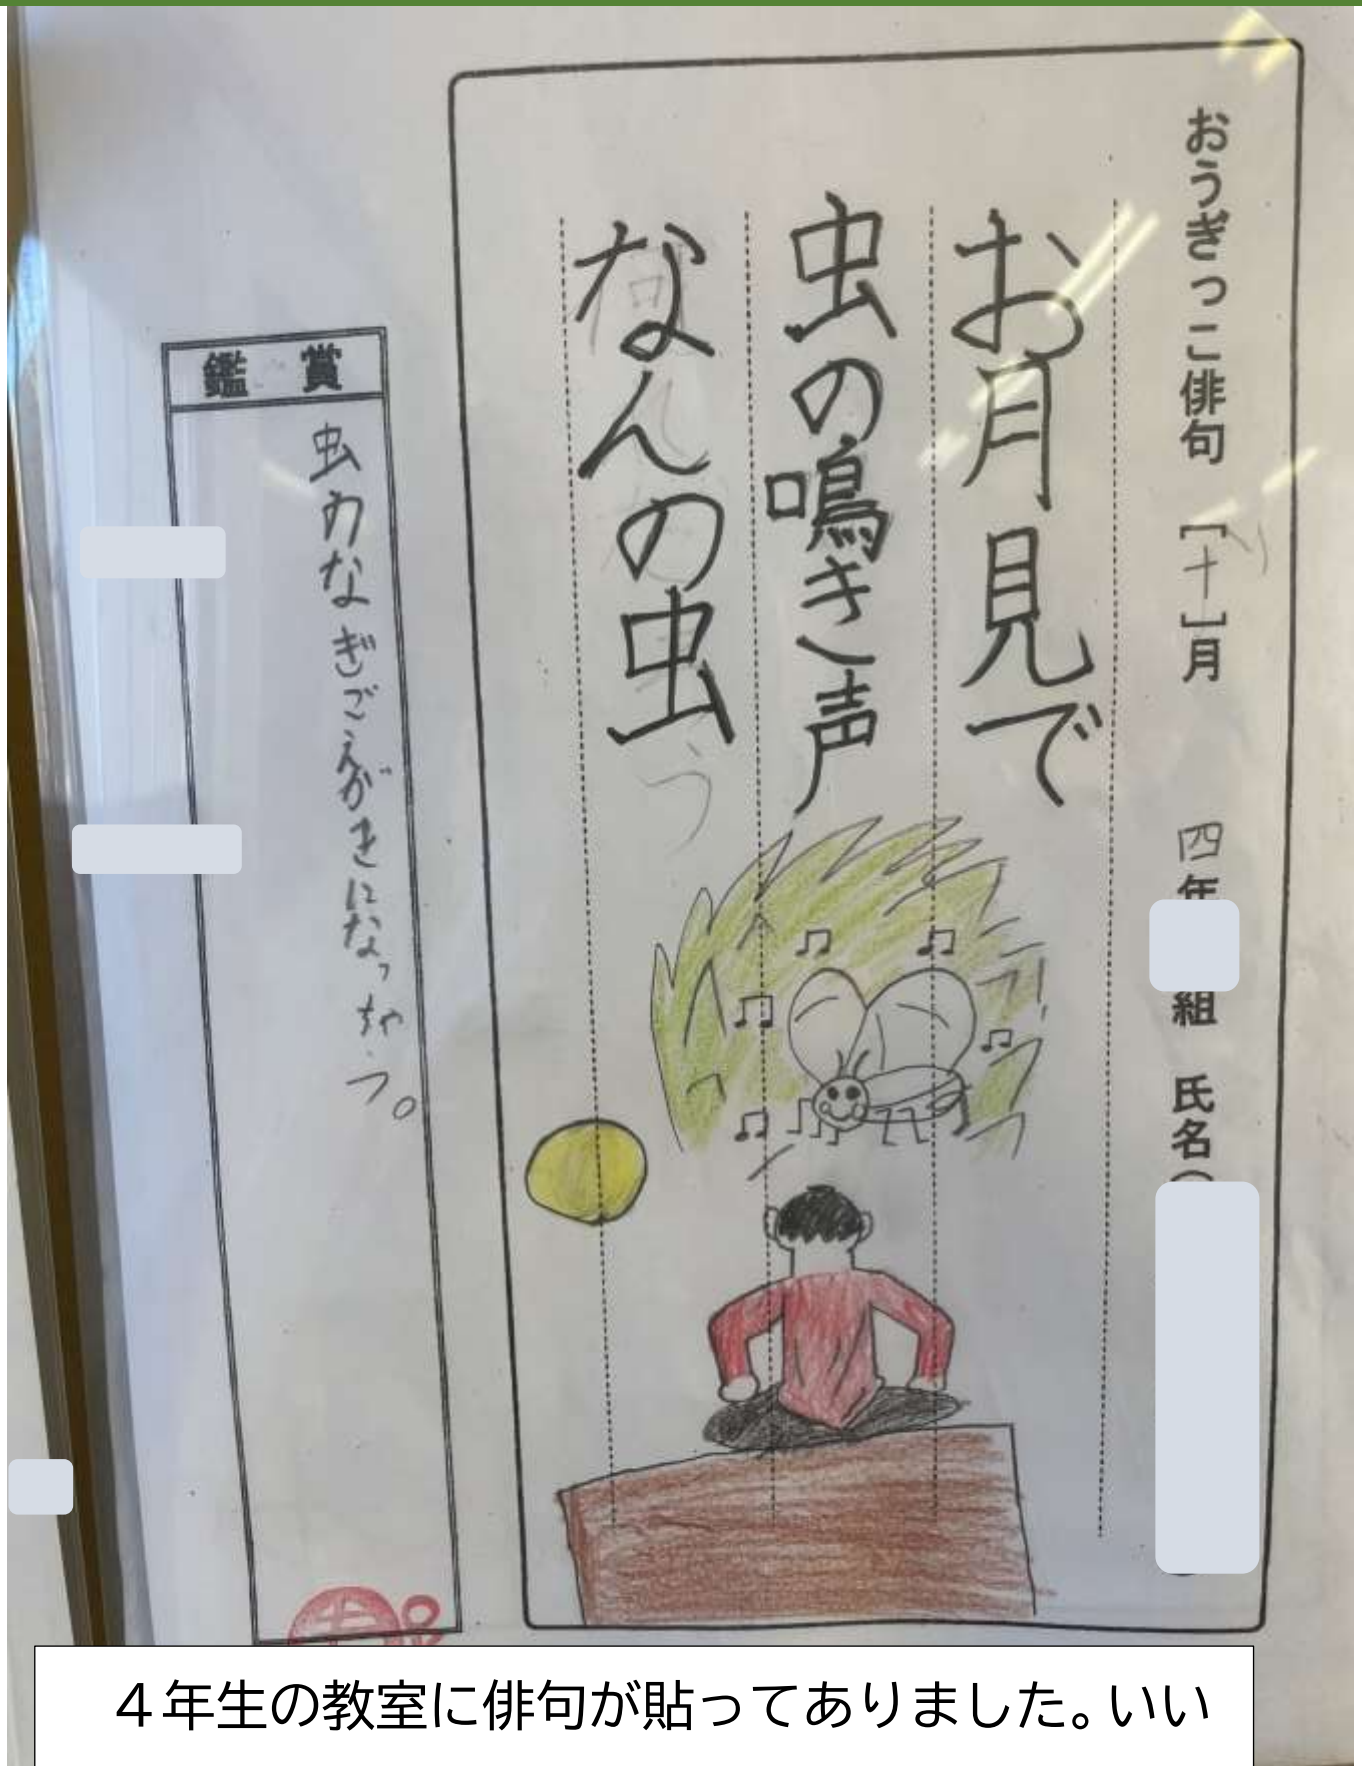 おうぎっこ俳句 [十]月 四年 組 氏名
お月見で
虫の鳴き声
なんの虫
鑑賞
虫のなぎごえがきになっちゃう。
４年生の教室に俳句が貼ってありました。いい